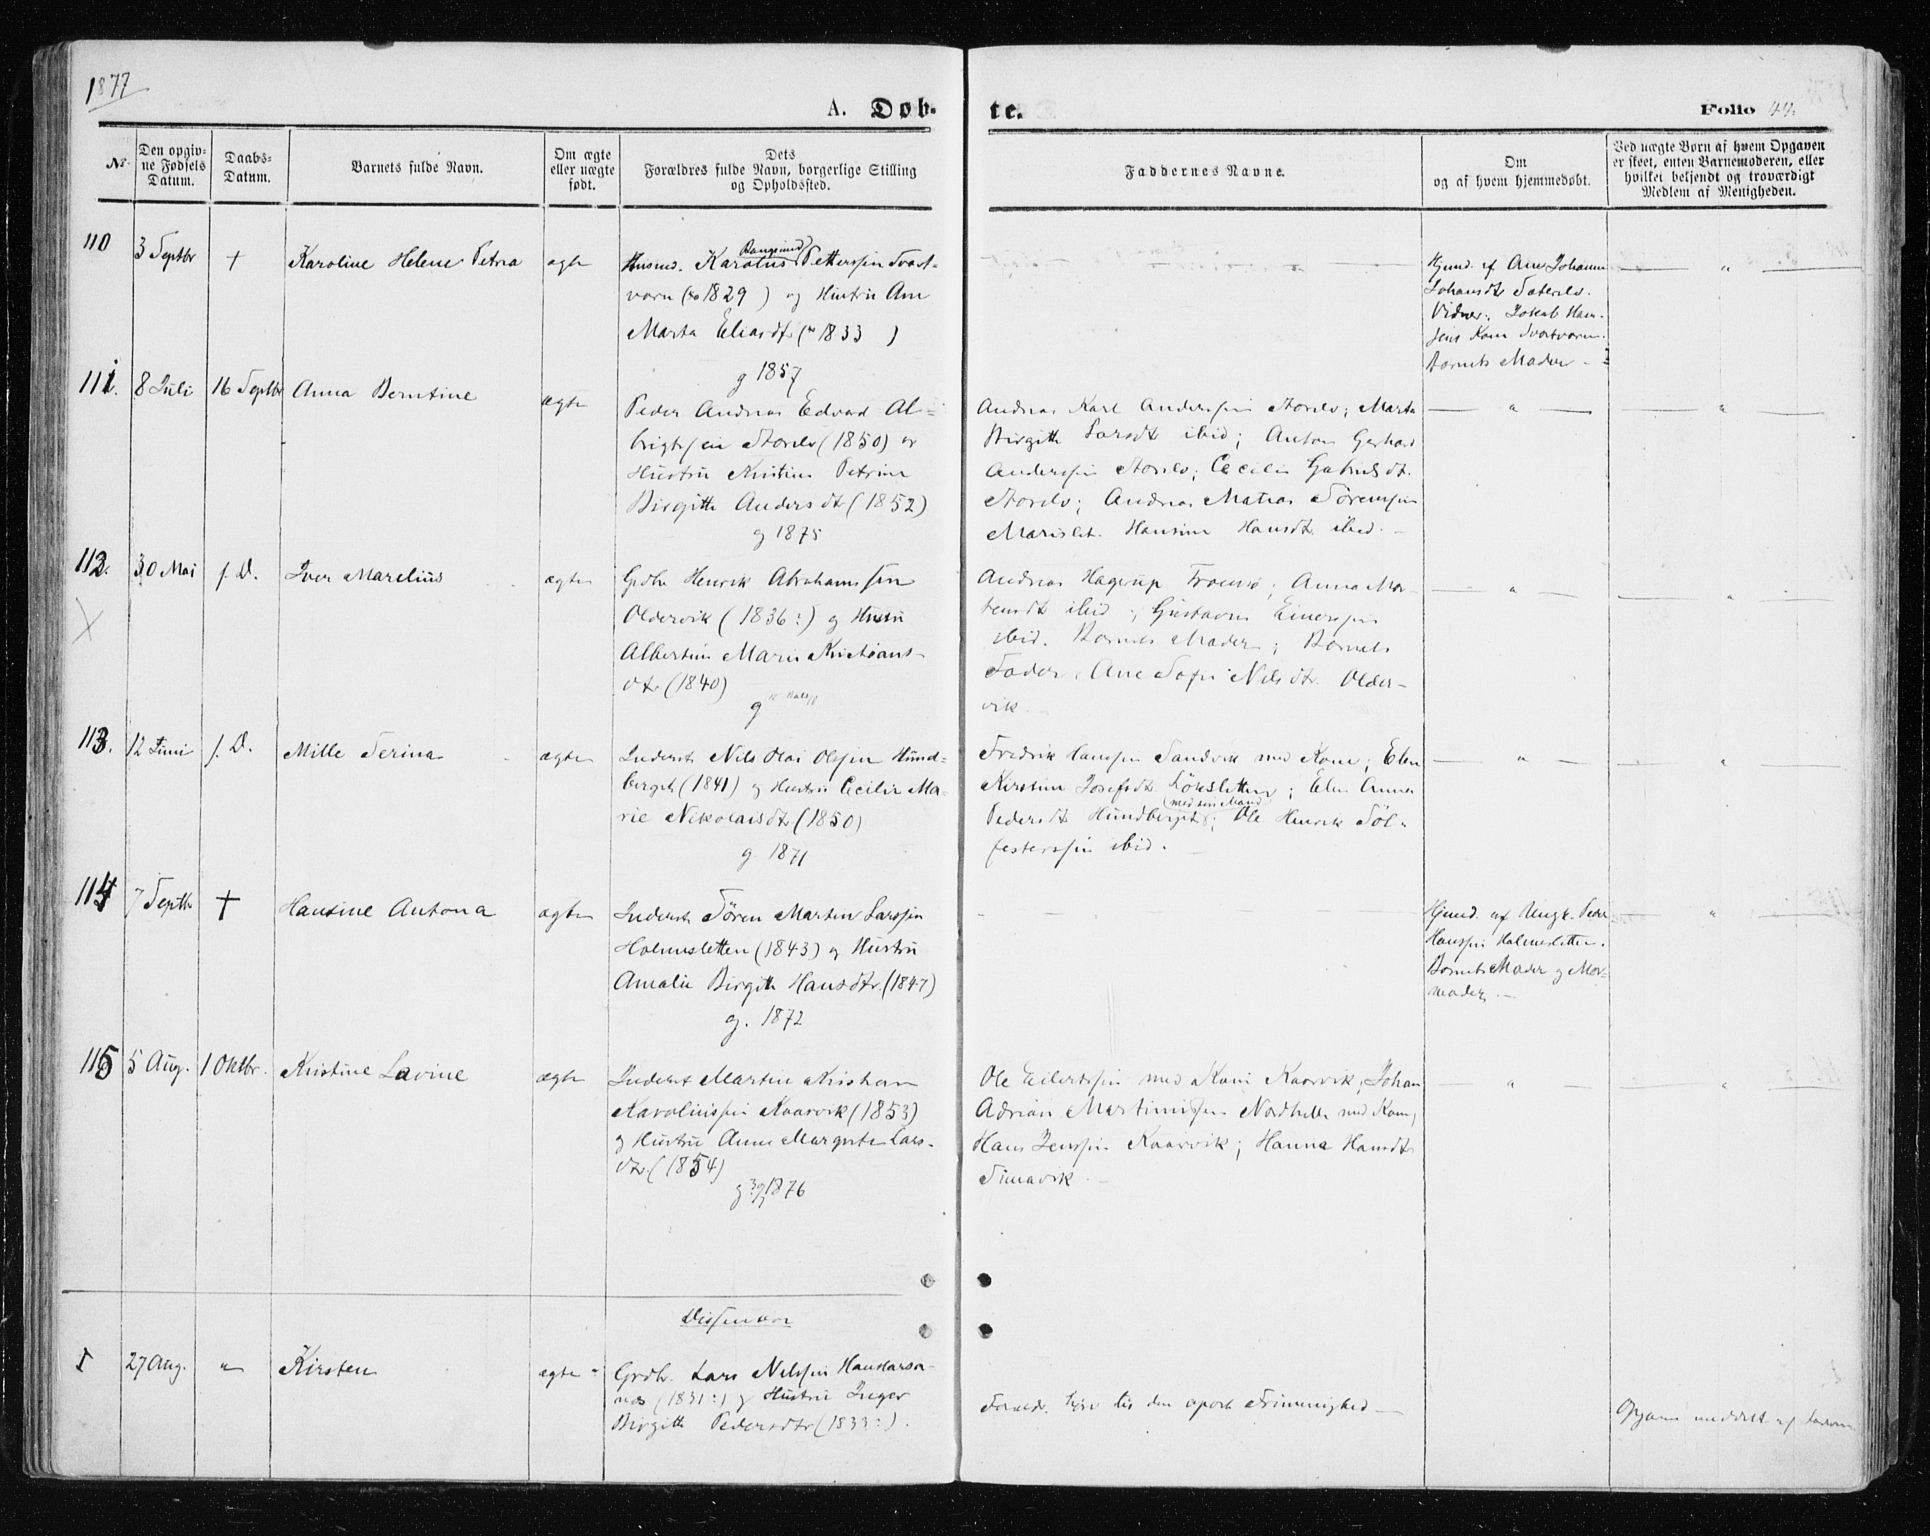 1877
A. Døb-
te.
Folio 44.
No.
Den opgiv-
ne Fødsels
Datum.
Daabs-
Datum.
Barnets fulde Navn.
Om ægte
eller uægte
født.
Dets
Forældres fulde Navn, borgerlige Stilling
og Opholdssted.
Faddernes Navne.
Om
og af hvem hjemmedøbt.
Ved uægte Børn af hvem Opgaven
er skeet, enten Barnemoderen, eller
hvilket bekjendt og troværdigt
Medlem af Menigheden.
110
3 Septbr
+
Karoline Helene Petrea
ægte
Husmd. Karolus Petterssen Svart-
varn (1829) og Hustru Ane
Marta Eliasdtr (1833)
g 1857
Hjmd. af Ane Johanna
Johansdt
Vidner: Jakob Han-
sens Kone Svartvaren.
Barnets Moder -
111.
8 Juli
16 Septbr
Anna Berntine
ægte
Peder Andreas Edvad Al-
brigtsen Storelv (1850) og
Hustru Kristine Petrine
Birgitte Andersdtr (1852)
g 1875
Andreas Karl Anderssen Storelv; Marta
Birgitte Larsdt ibid; Anton Gerhard
Anderssen Storelv; Cecilie Gabrielsdt.
Storelv; Andreas Matias Sørenssen
Marislet. Hansine Hansdt ibid. -
112.
30 Mai
s. D.
Iver Marelius
ægte
Grdbr Henrik Abrahamssen
Oldervik (1836?) og Hustru
Albertine Marie Kristians-
dtr (1840)
g
Andreas Hagerup Tromsø; Anna Mor-
tensdt ibid; Gustava Einerssen
ibid. Barnets Moder; Barnets
Fader, Ane Sofie Nilsdtr. Older-
vik.
113.
12 Juni
s. D.
Mille Serina
ægte
Inderst Nils Olai Olssen Hund-
berget (1841) og Hustru Cecilie Ma-
rie Nikolaisdtr (1850)
g 1871
Fredrik Hanssen Sandvik med Kone; Elen
Kirstine Josefsdt Løksletten; Elen Anna
(med sin Mand)
Pedersdt Hundberget; Ole Henrik Søl-
festerssen ibid.
114
7 Septbr
+
Hansine Antona
ægte
Inderst Søren Martin Larssen
Holmesletten (1843) og Hustru
Amalie Birgitte Hansdtr. (1847)
g. 1872
Hjmd. af Ungk. Peder
Hanssen Holmesletten.
Barnets Moder og Mor-
moder. -
115
5 Aug.
1 Oktbr.
Kristine Lavine
ægte
Inderst Martin Kristian
Karolinssen Kaarvik (1853)
og Hustru Anne Margrete Lars-
dtr. (1854)
g 1876
Ole Eilertssen med Kone Kaarvik; Johan
Adrian Martinussen Nordhella med Kone,
Hans Jenssen Kaarvik; Hanna Hansdt
Simavik. -
Dissentere
1
27 Aug.
"
Kirsten
ægte
Grdbr. Lars Nilssen Hanslarsa-
næs (1831?) og Hustru Inger
Birgitte Pedersdtr (1833?).
Foreldr. høre til den apost Frimenighed -
Opgaven meddelt af Faderen